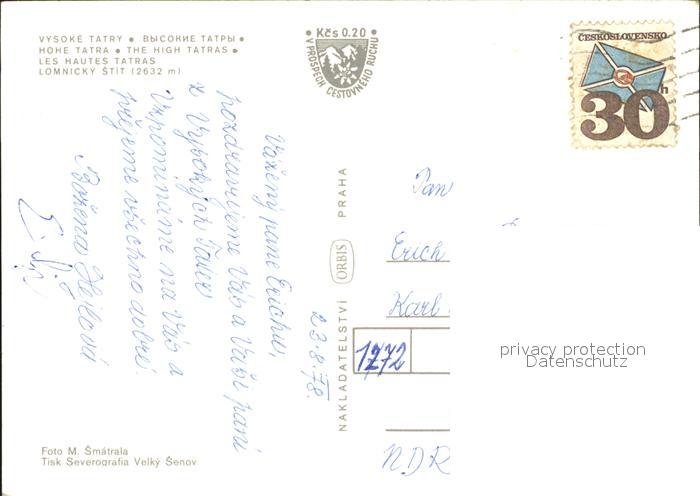 VYSOKÉ TATRY • ВЫСОКИЕ ТАТРЫ •
HOHE TATRA • THE HIGH TATRAS •
LES HAUTES TATRAS
LOMNICKÝ ŠTÍT (2632 m)
• Kčs 0.20 •
V PROSPECH CESTOVNÉHO RUCHU
ČESKOSLOVENSKO
30h
Vážený pane Erichu,
pozdravujeme Vás a Vaši paní
z Vysokých Tater
Vzpomínáme na Vás a
přejeme všechno dobré.
Božena
23.8.78.
NAKLADATELSTVÍ ORBIS PRAHA
Pan
Erich
Karl
1272
NDR
privacy protection
Datenschutz
Foto M. Šmátrala
Tisk Severografia Velký Šenov